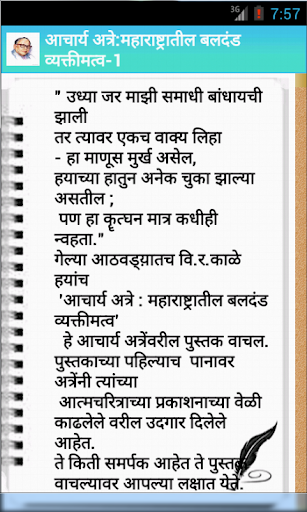 3G 7:57
आचार्य अत्रे:महाराष्ट्रातील बलदंड
व्यक्तीमत्व-1
" उध्या जर माझी समाधी बांधायची
झाली
तर त्यावर एकच वाक्य लिहा
- हा माणूस मुर्ख असेल,
हयाच्या हातुन अनेक चुका झाल्या
असतील ;
पण हा कॄत्घन मात्र कधीही
न्वहता."
गेल्या आठवड्य़ातच वि.र.काळे
हयांच
'आचार्य अत्रे : महाराष्ट्रातील बलदंड
व्यक्तीमत्व'
हे आचार्य अत्रेंवरील पुस्तक वाचल.
पुस्तकाच्या पहिल्याच पानावर
अत्रेंनी त्यांच्या
आत्मचरित्राच्या प्रकाशनाच्या वेळी
काढलेले वरील उदगार दिलेले
आहेत.
ते किती समर्पक आहेत ते पुस्तक
वाचल्यावर आपल्या लक्षात येते.